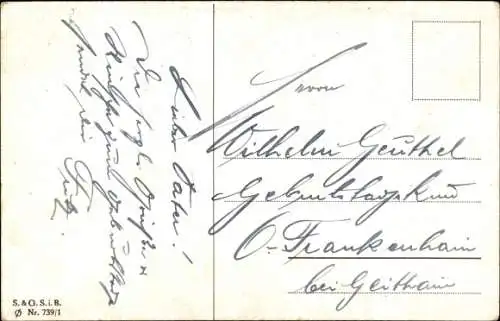 Lieber Vater!
Die herzl. Grüße u.
Glückw. zum Geburtstage
sendet Dein Fritz.
Herrn
Wilhelm Geuthel
Geburtstagskind
O-Frankenhain
bei Geithain
S. & G. S. i. B.
Ø Nr. 739/1